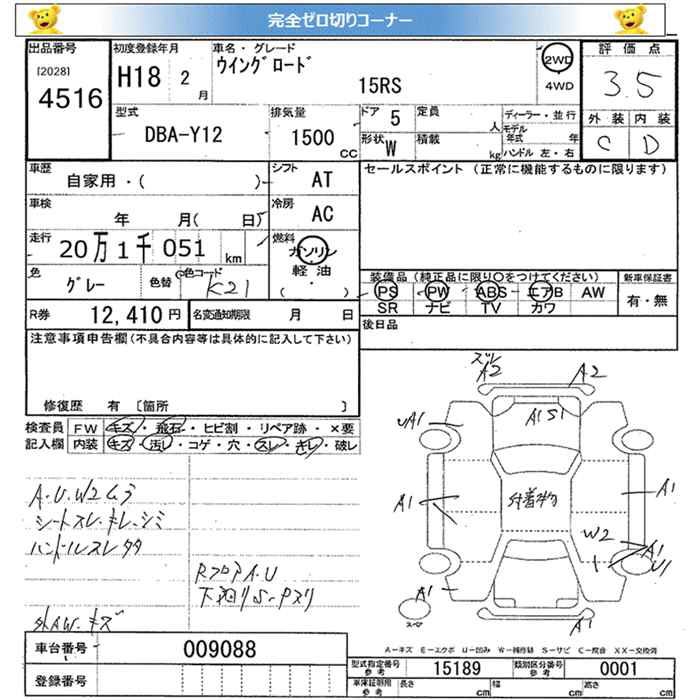 完全ゼロ切りコーナー
出品番号 初度登録年月 車名・グレード 評価点
[2028] 4516 H18 2月 ウイングロード 15RS 2WD 4WD 3.5
型式 排気量 ドア 5 定員 人 ディーラー・並行 外装 内装
DBA-Y12 1500 CC 形状 W 積載 kg モデル年式 年 ハンドル 左・右 C D
車歴 自家用・( ) シフト AT セールスポイント (正常に機能するものに限ります)
車検 年 月( 日) 冷房 AC
走行 20万1千051 km 燃料 ガソリン 軽油 ( ・ )
色 グレー 色替 色コード K21 装備品 (純正品に限り○をつけてください) 新車保証書
PS PW ABS エアB AW 有・無
SR ナビ TV カワ
R券 12,410円 名変通知期限 月 日 後日品
注意事項申告欄(不具合内容等は具体的に記入して下さい)
修復歴 有 [箇所 ]
検査員 FW キズ・飛石・ヒビ割・リペア跡・×要
記入欄 内装 キズ・汚レ・コゲ・穴・スレ・キレ・破レ
A.U.W2ムラ
シートスレ・キレ・シミ
ハンドルスレ
RフロアA.U
下廻りS-Pスリ
外AW.キズ
スレ A2 A2
UA1 A1S1
A1 A1
W2
A1 U1
A1 A1
スペア
A-キズ E-エクボ U-凹み W-補修跡 S-サビ C-腐食 XX-交換済
車台番号 009088
型式指定番号 参考 15189 類別区分番号 参考 0001
登録番号 車庫証明用 参考 長さ cm 幅 cm 高さ cm